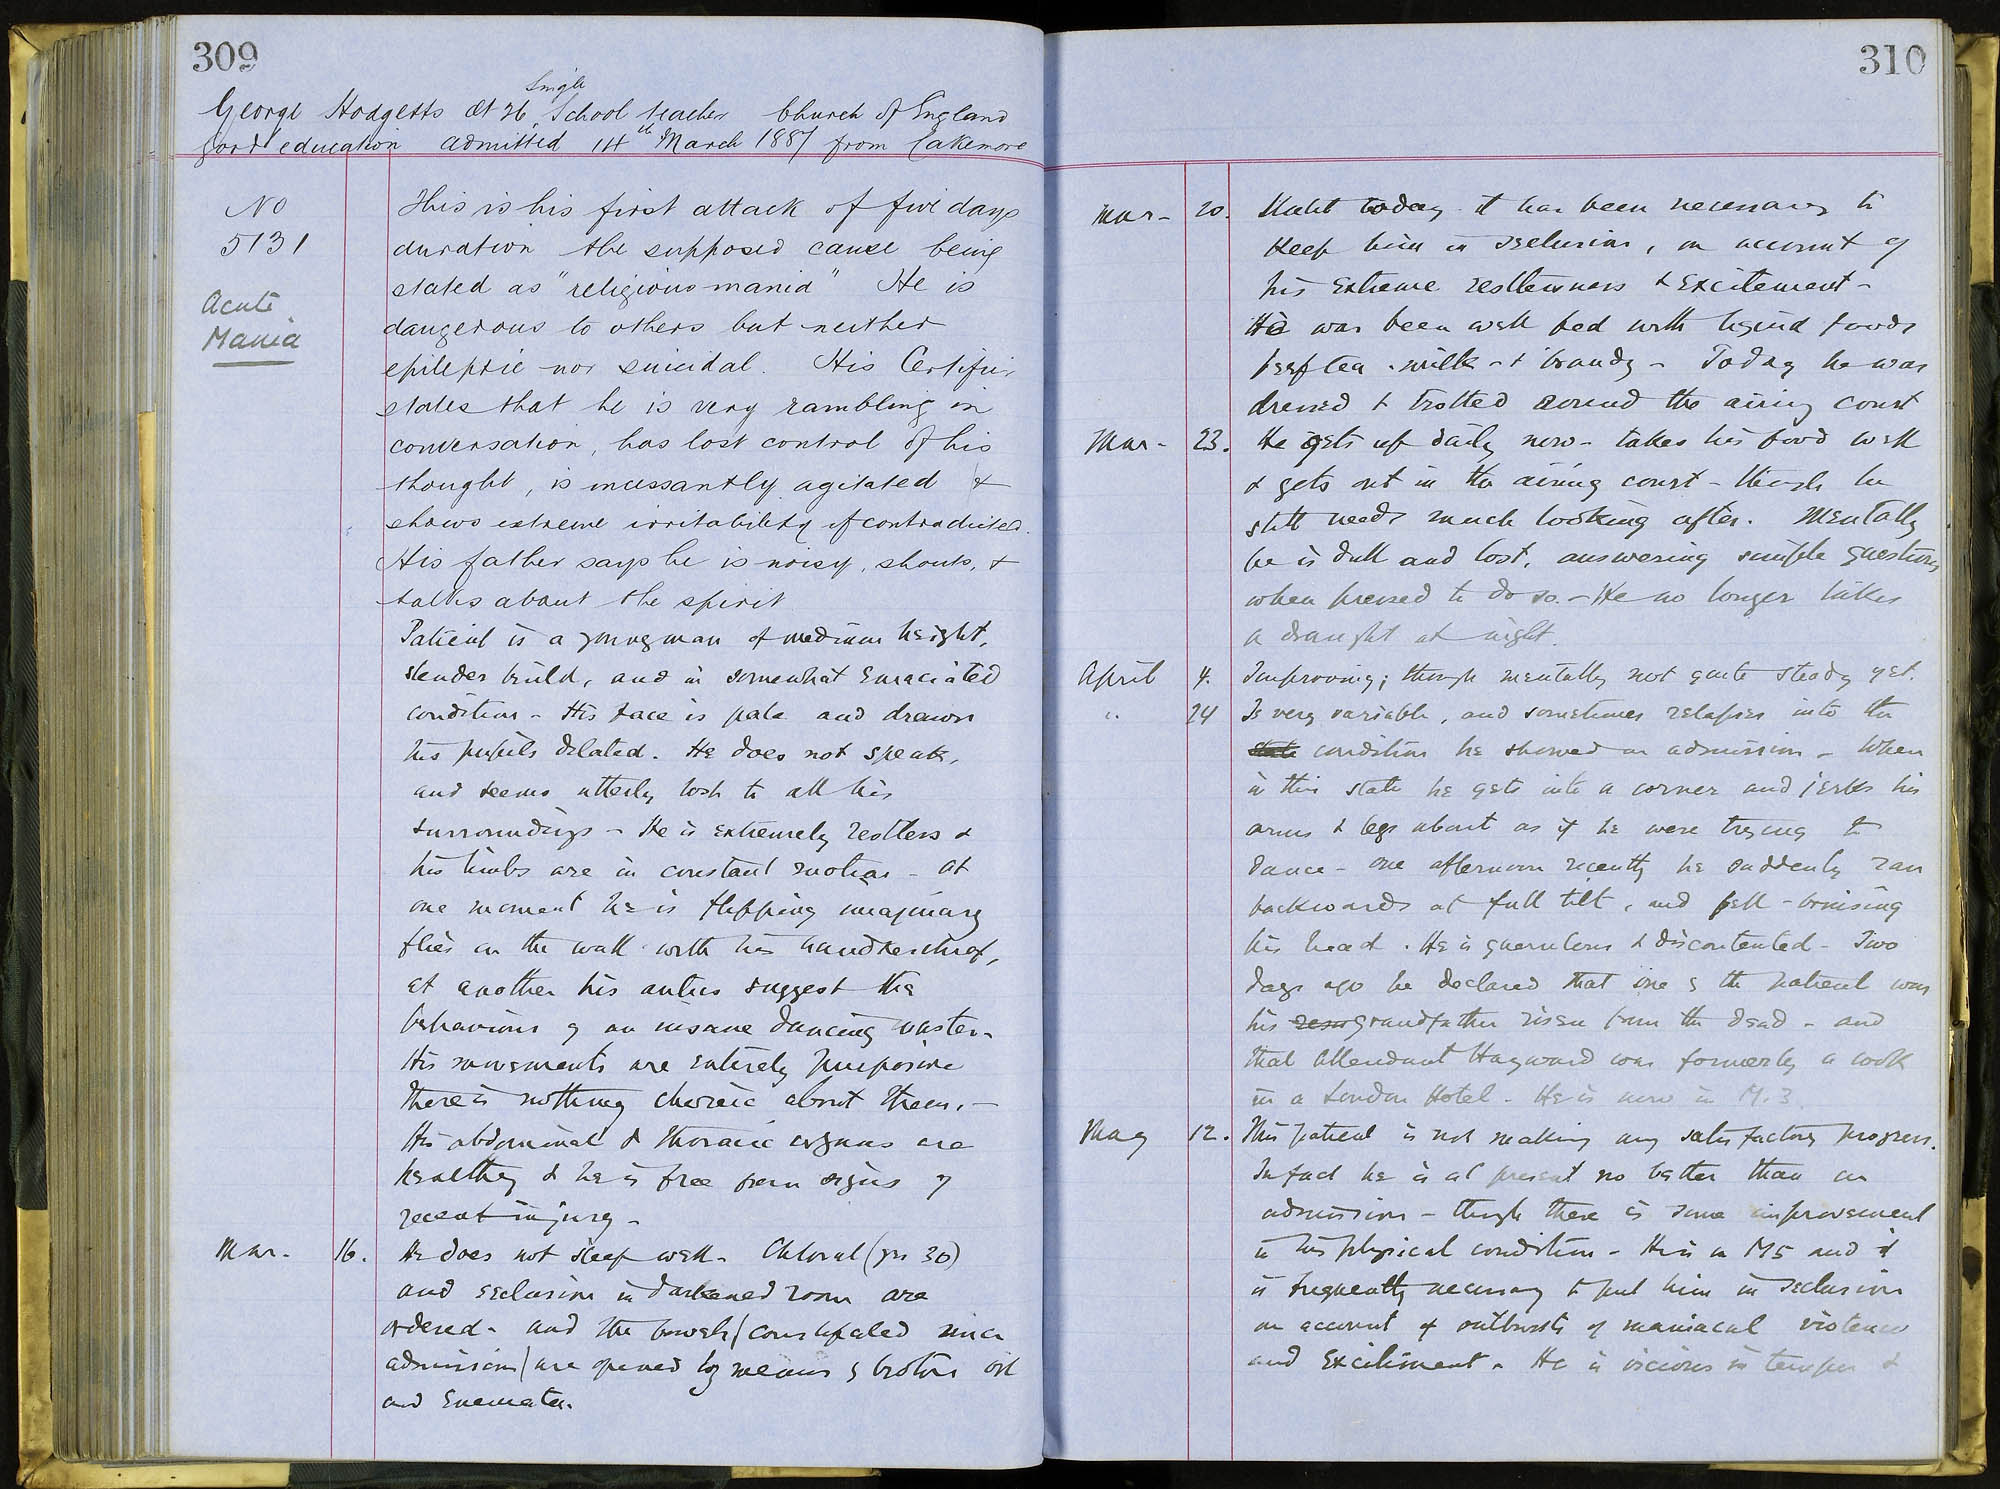 309
Single
George Hodgetts æt 26 School teacher Church of England
good education admitted 14th March 1887 from Cakemore
No
5131
Acute
Mania
This is his first attack of five days
duration the supposed cause being
stated as "religious mania" He is
dangerous to others but neither
epileptic nor suicidal. His Certific.
states that he is very rambling in
conversation, has lost control of his
thought, is incessantly agitated &
shows extreme irritability if contradicted.
His father says he is noisy, shouts, &
talks about the spirit
Patient is a young man of medium height,
slender build, and in somewhat emaciated
condition - His face is pale and drawn
his pupils dilated. He does not speak,
and seems utterly lost to all his
surroundings - He is extremely restless &
his limbs are in constant motion - at
one moment he is flipping imaginary
flies on the wall with his handkerchief,
at another his antics suggest the
behaviour of an insane dancing master -
His movements are entirely purposive
there is nothing choreic about them. -
His abdominal & thoracic organs are
healthy & he is free from signs of
recent injury -
Mar. 16. He does not sleep well - Chloral (grs 30)
and seclusion in darkened room are
ordered - and the bowels (constipated since
admission) are opened by means of castor oil
and enemata.
310
Mar - 20. Until today it has been necessary to
keep him in seclusion, on account of
his extreme restlessness & excitement -
He was been well fed with liquid foods
beef tea - milk - & brandy - Today he was
dressed & trotted around the airing court
Mar - 23. He gets up daily now - takes his food well
& gets out in the airing court - though he
still needs much looking after. Mentally
he is dull and lost, answering simple questions
when pressed to do so. - He no longer takes
a draught at night.
April 4. Improving; though mentally not quite steady yet.
" 24 Is very variable, and sometimes relapses into the
state condition he showed on admission - When
in this state he gets into a corner and jerks his
arms & legs about as if he were trying to
dance - one afternoon recently he suddenly ran
backwards at full tilt, and fell - bruising
his head. He is querulous & discontented - Two
days ago he declared that one of the patient was
his grandfather risen from the dead - and
that Attendant Hayward was formerly a cook
in a London Hotel - He is now in M.3.
May 12. This patient is not making any satisfactory progress.
In fact he is at present no better than on
admission - though there is some improvement
in his physical condition - He is in M5 and it
is frequently necessary to put him in seclusion
on account of outbursts of maniacal violence
and excitement - He is vicious in temper &